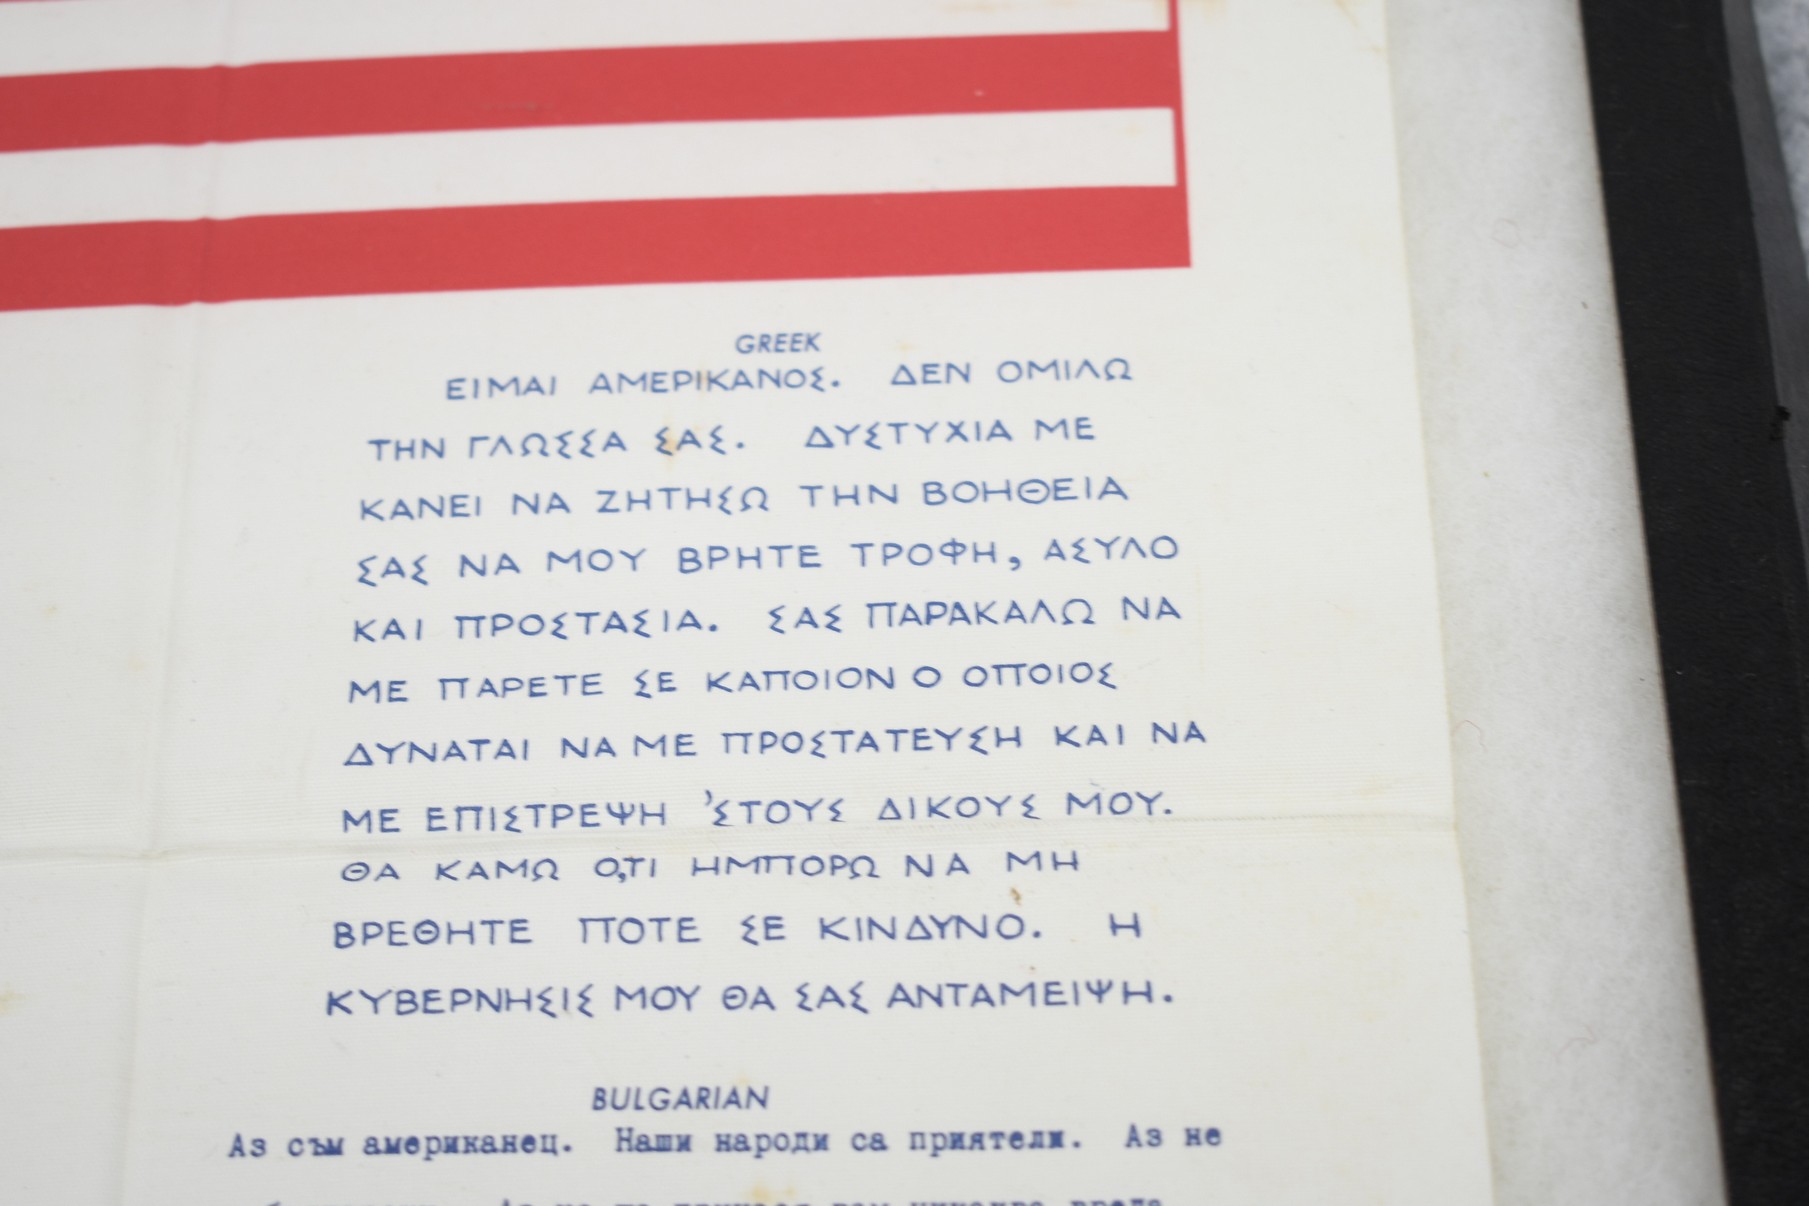 GREEK
ΕΙΜΑΙ ΑΜΕΡΙΚΑΝΟΣ. ΔΕΝ ΟΜΙΛΩ
ΤΗΝ ΓΛΩΣΣΑ ΣΑΣ. ΔΥΣΤΥΧΙΑ ΜΕ
ΚΑΝΕΙ ΝΑ ΖΗΤΗΣΩ ΤΗΝ ΒΟΗΘΕΙΑ
ΣΑΣ ΝΑ ΜΟΥ ΒΡΗΤΕ ΤΡΟΦΗ, ΑΣΥΛΟ
ΚΑΙ ΠΡΟΣΤΑΣΙΑ. ΣΑΣ ΠΑΡΑΚΑΛΩ ΝΑ
ΜΕ ΠΑΡΕΤΕ ΣΕ ΚΑΠΟΙΟΝ Ο ΟΠΟΙΟΣ
ΔΥΝΑΤΑΙ ΝΑ ΜΕ ΠΡΟΣΤΑΤΕΥΣΗ ΚΑΙ ΝΑ
ΜΕ ΕΠΙΣΤΡΕΨΗ 'ΣΤΟΥΣ ΔΙΚΟΥΣ ΜΟΥ.
ΘΑ ΚΑΜΩ Ο,ΤΙ ΗΜΠΟΡΩ ΝΑ ΜΗ
ΒΡΕΘΗΤΕ ΠΟΤΕ ΣΕ ΚΙΝΔΥΝΟ. Η
ΚΥΒΕΡΝΗΣΙΣ ΜΟΥ ΘΑ ΣΑΣ ΑΝΤΑΜΕΙΨΗ.
BULGARIAN
Аз съм американец. Наши народи са приятели. Аз не